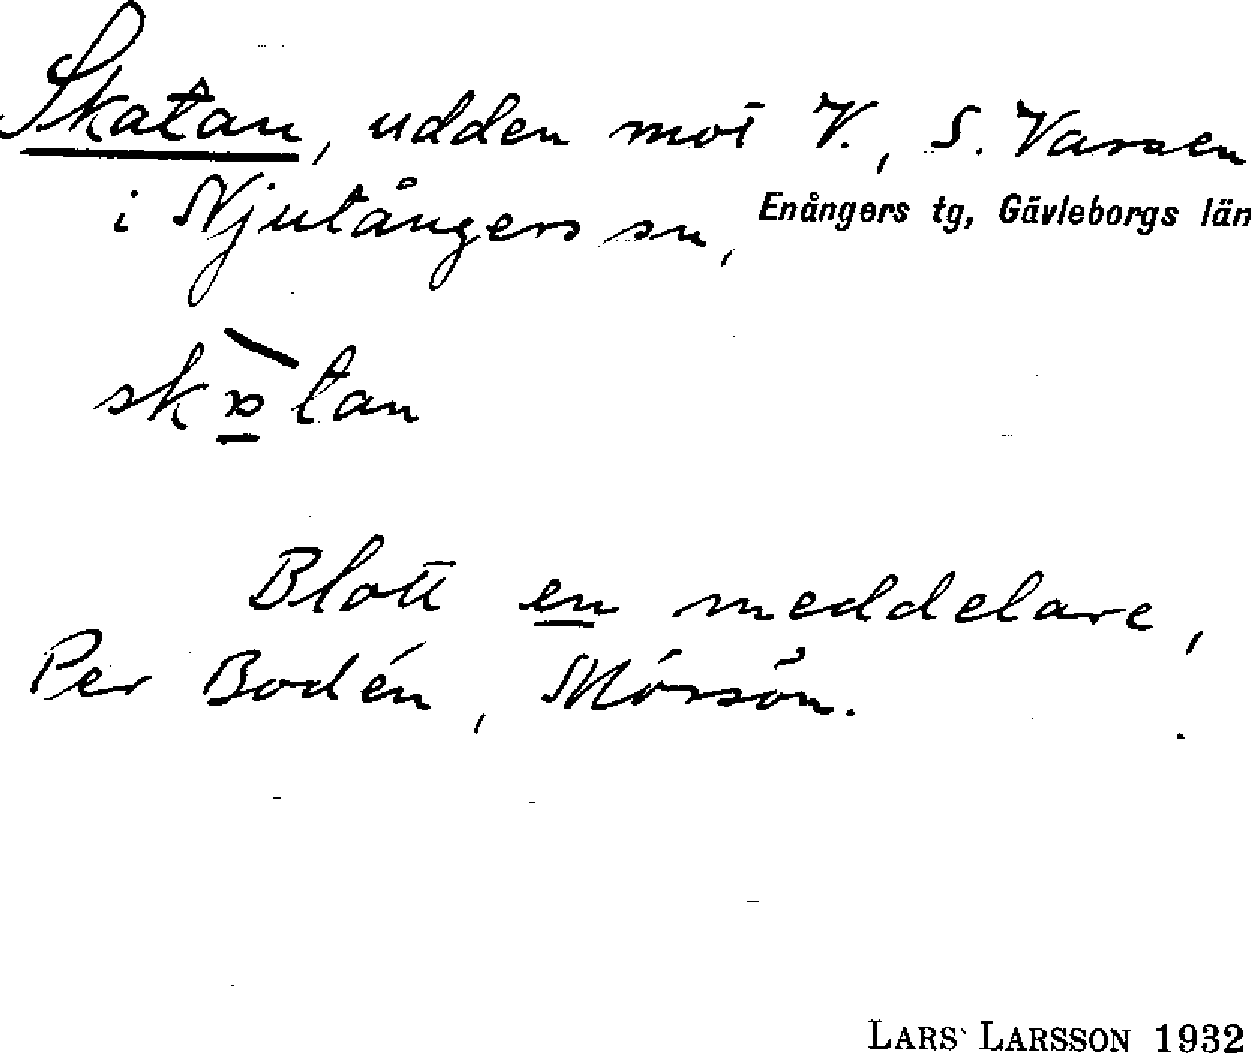 Skatan, udden mot V., S. Vassen
i Njutångers sn, Enångers tg, Gävleborgs län
tan
Blott en meddelare,
Per Bodén, Mössön.
LARS LARSSON 1932